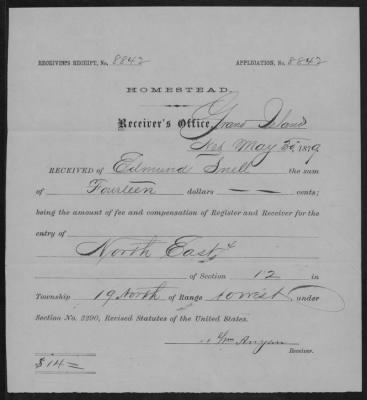 RECEIVER'S RECEIPT, No. 8842 APPLICATION, No. 8842
HOMESTEAD.
Receiver's Office, Grand Island
Neb May 3d, 1879
RECEIVED of Edmund Snell the sum
of Fourteen dollars — — cents;
being the amount of fee and compensation of Register and Receiver for the
entry of
North East 4
of Section 12 in
Township 19 North of Range 10 West under
Section No. 2290, Revised Statutes of the United States.
Wm Anyan
Receiver.
$14=